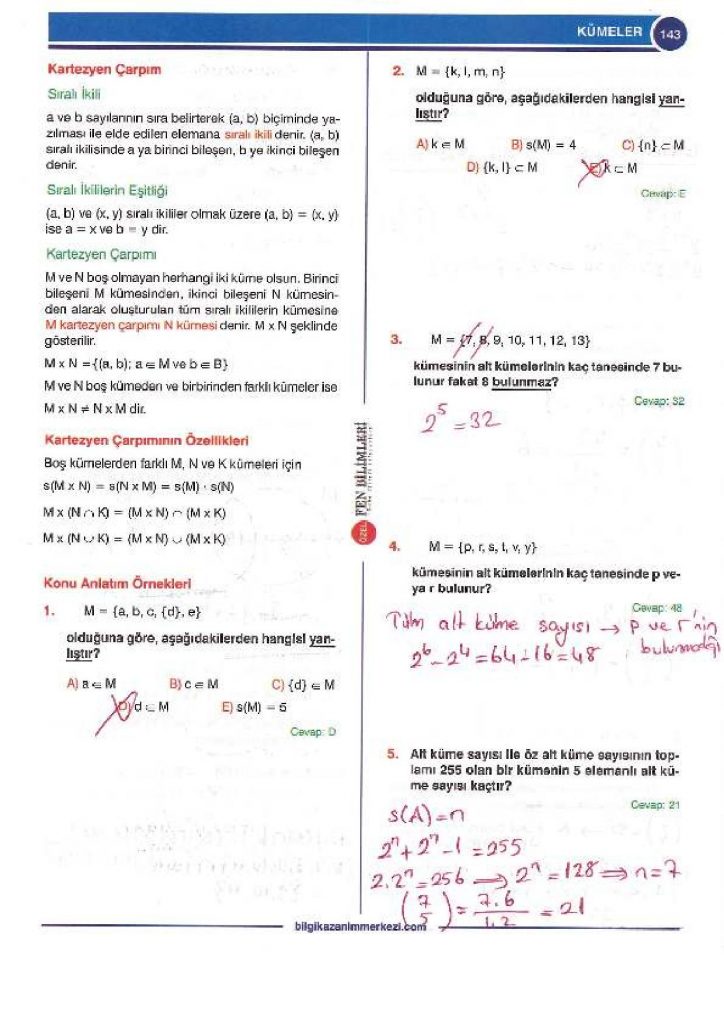 KÜMELER 143
Kartezyen Çarpım
Sıralı İkili
a ve b sayılarının sıra belirterek (a, b) biçiminde ya-
zılması ile elde edilen elemana sıralı ikili denir. (a, b)
sıralı ikilisinde a ya birinci bileşen, b ye ikinci bileşen
denir.
Sıralı İkililerin Eşitliği
(a, b) ve (x, y) sıralı ikililer olmak üzere (a, b) = (x, y)
ise a = x ve b = y dir.
Kartezyen Çarpımı
M ve N boş olmayan herhangi iki küme olsun. Birinci
bileşeni M kümesinden, ikinci bileşeni N kümesin-
den alarak oluşturulan tüm sıralı ikililerin kümesine
M kartezyen çarpımı N kümesi denir. M x N şeklinde
gösterilir.
M x N ={(a, b); a ∈ M ve b ∈ B}
M ve N boş kümeden ve birbirinden farklı kümeler ise
M x N ≠ N x M dir.
Kartezyen Çarpımının Özellikleri
Boş kümelerden farklı M, N ve K kümeleri için
s(M x N) = s(N x M) = s(M) · s(N)
M x (N ∩ K) = (M x N) ∩ (M x K)
M x (N ∪ K) = (M x N) ∪ (M x K)
Konu Anlatım Örnekleri
1. M = {a, b, c, {d}, e}
olduğuna göre, aşağıdakilerden hangisi yan-
lıştır?
A) a ∈ M B) c ∈ M C) {d} ∈ M
D) d ⊂ M E) s(M) = 5
Cevap: D
ÖZEL FEN BİLİMLERİ
2. M = {k, l, m, n}
olduğuna göre, aşağıdakilerden hangisi yan-
lıştır?
A) k ∈ M B) s(M) = 4 C) {n} ⊂ M
D) {k, l} ⊂ M E) k ⊂ M
Cevap: E
3. M = {7, 8, 9, 10, 11, 12, 13}
kümesinin alt kümelerinin kaç tanesinde 7 bu-
lunur fakat 8 bulunmaz?
Cevap: 32
2⁵ = 32
4. M = {p, r, s, t, v, y}
kümesinin alt kümelerinin kaç tanesinde p ve-
ya r bulunur?
Cevap: 48
Tüm alt küme sayısı → p ve r'nin
bulunmadığı
2⁶ - 2⁴ = 64 - 16 = 48
5. Alt küme sayısı ile öz alt küme sayısının top-
lamı 255 olan bir kümenin 5 elemanlı alt kü-
me sayısı kaçtır?
Cevap: 21
s(A) = n
2ⁿ + 2ⁿ - 1 = 255
2.2ⁿ = 256 ⇒ 2ⁿ = 128 ⇒ n = 7
(7 5) = 7.6 / 1.2 = 21
bilgikazanimmerkezi.com